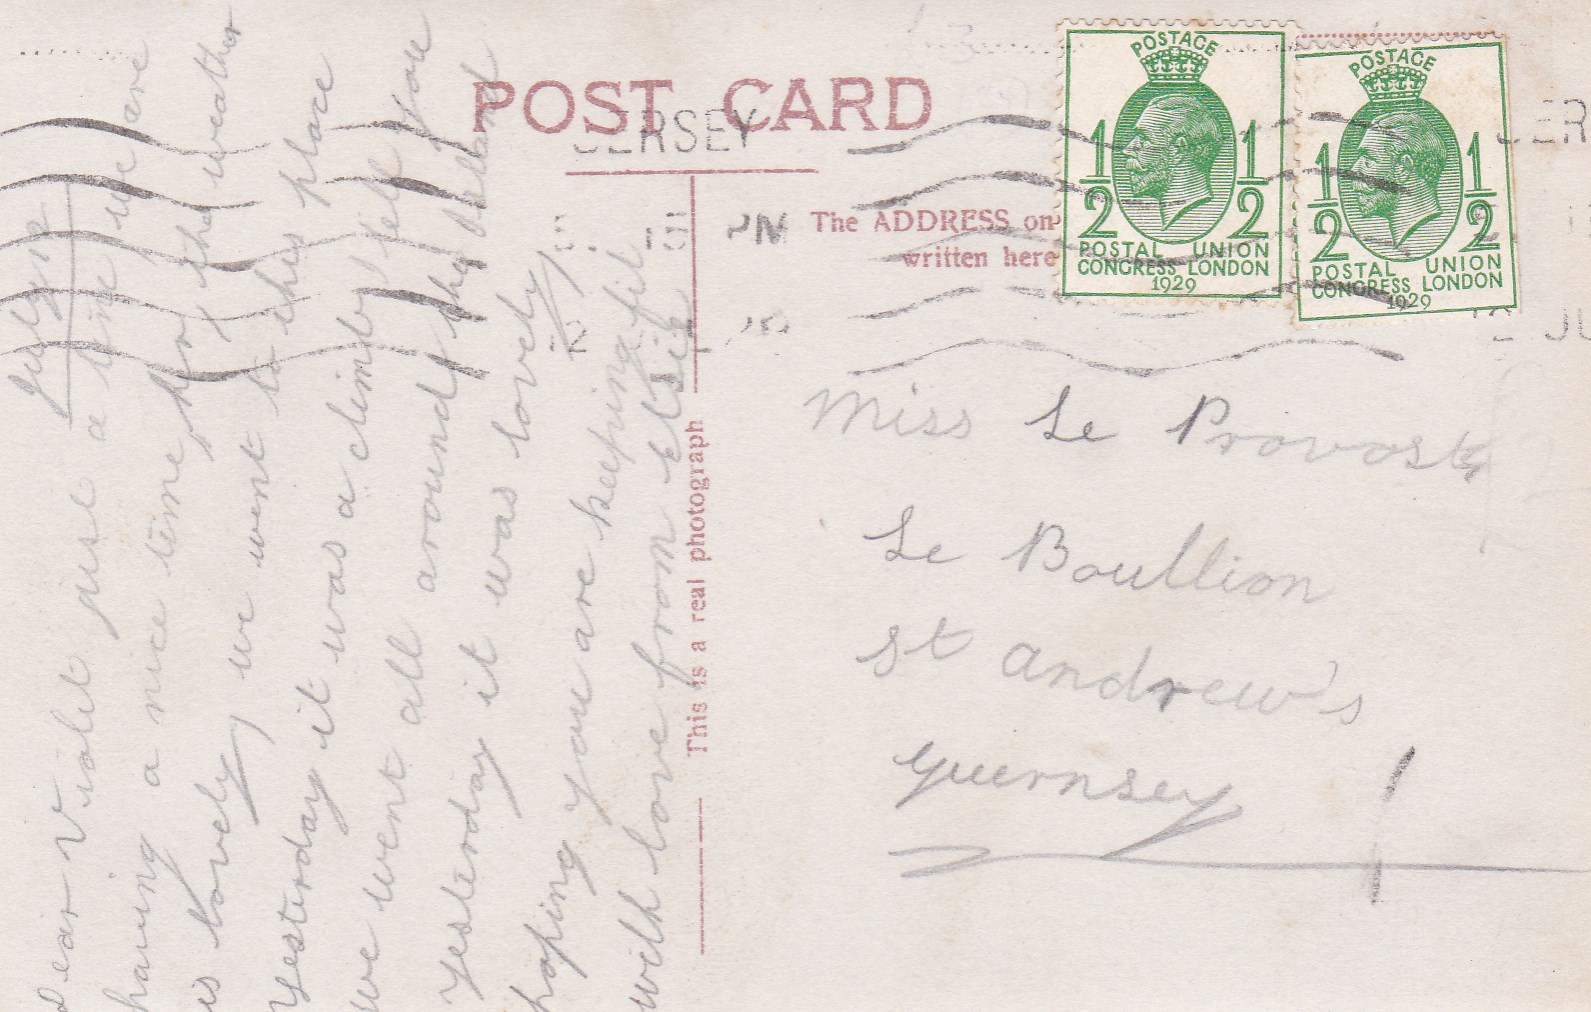 POST CARD
JERSEY
PM
The ADDRESS on
written here
POSTAGE
1/2 1/2
POSTAL UNION
CONGRESS LONDON
1929
POSTAGE
1/2 1/2
POSTAL UNION
CONGRESS LONDON
1929
JER
JU
This is a real photograph
Miss Le Provost
Le Boullion
St Andrew's
Guernsey
July
Dear Violet just a line we are
having a nice time the weather
is lovely we went to this place
Yesterday it was a climb
we went all around the Island
Yesterday it was lovely
hoping you are keeping fit
with love from Elsie